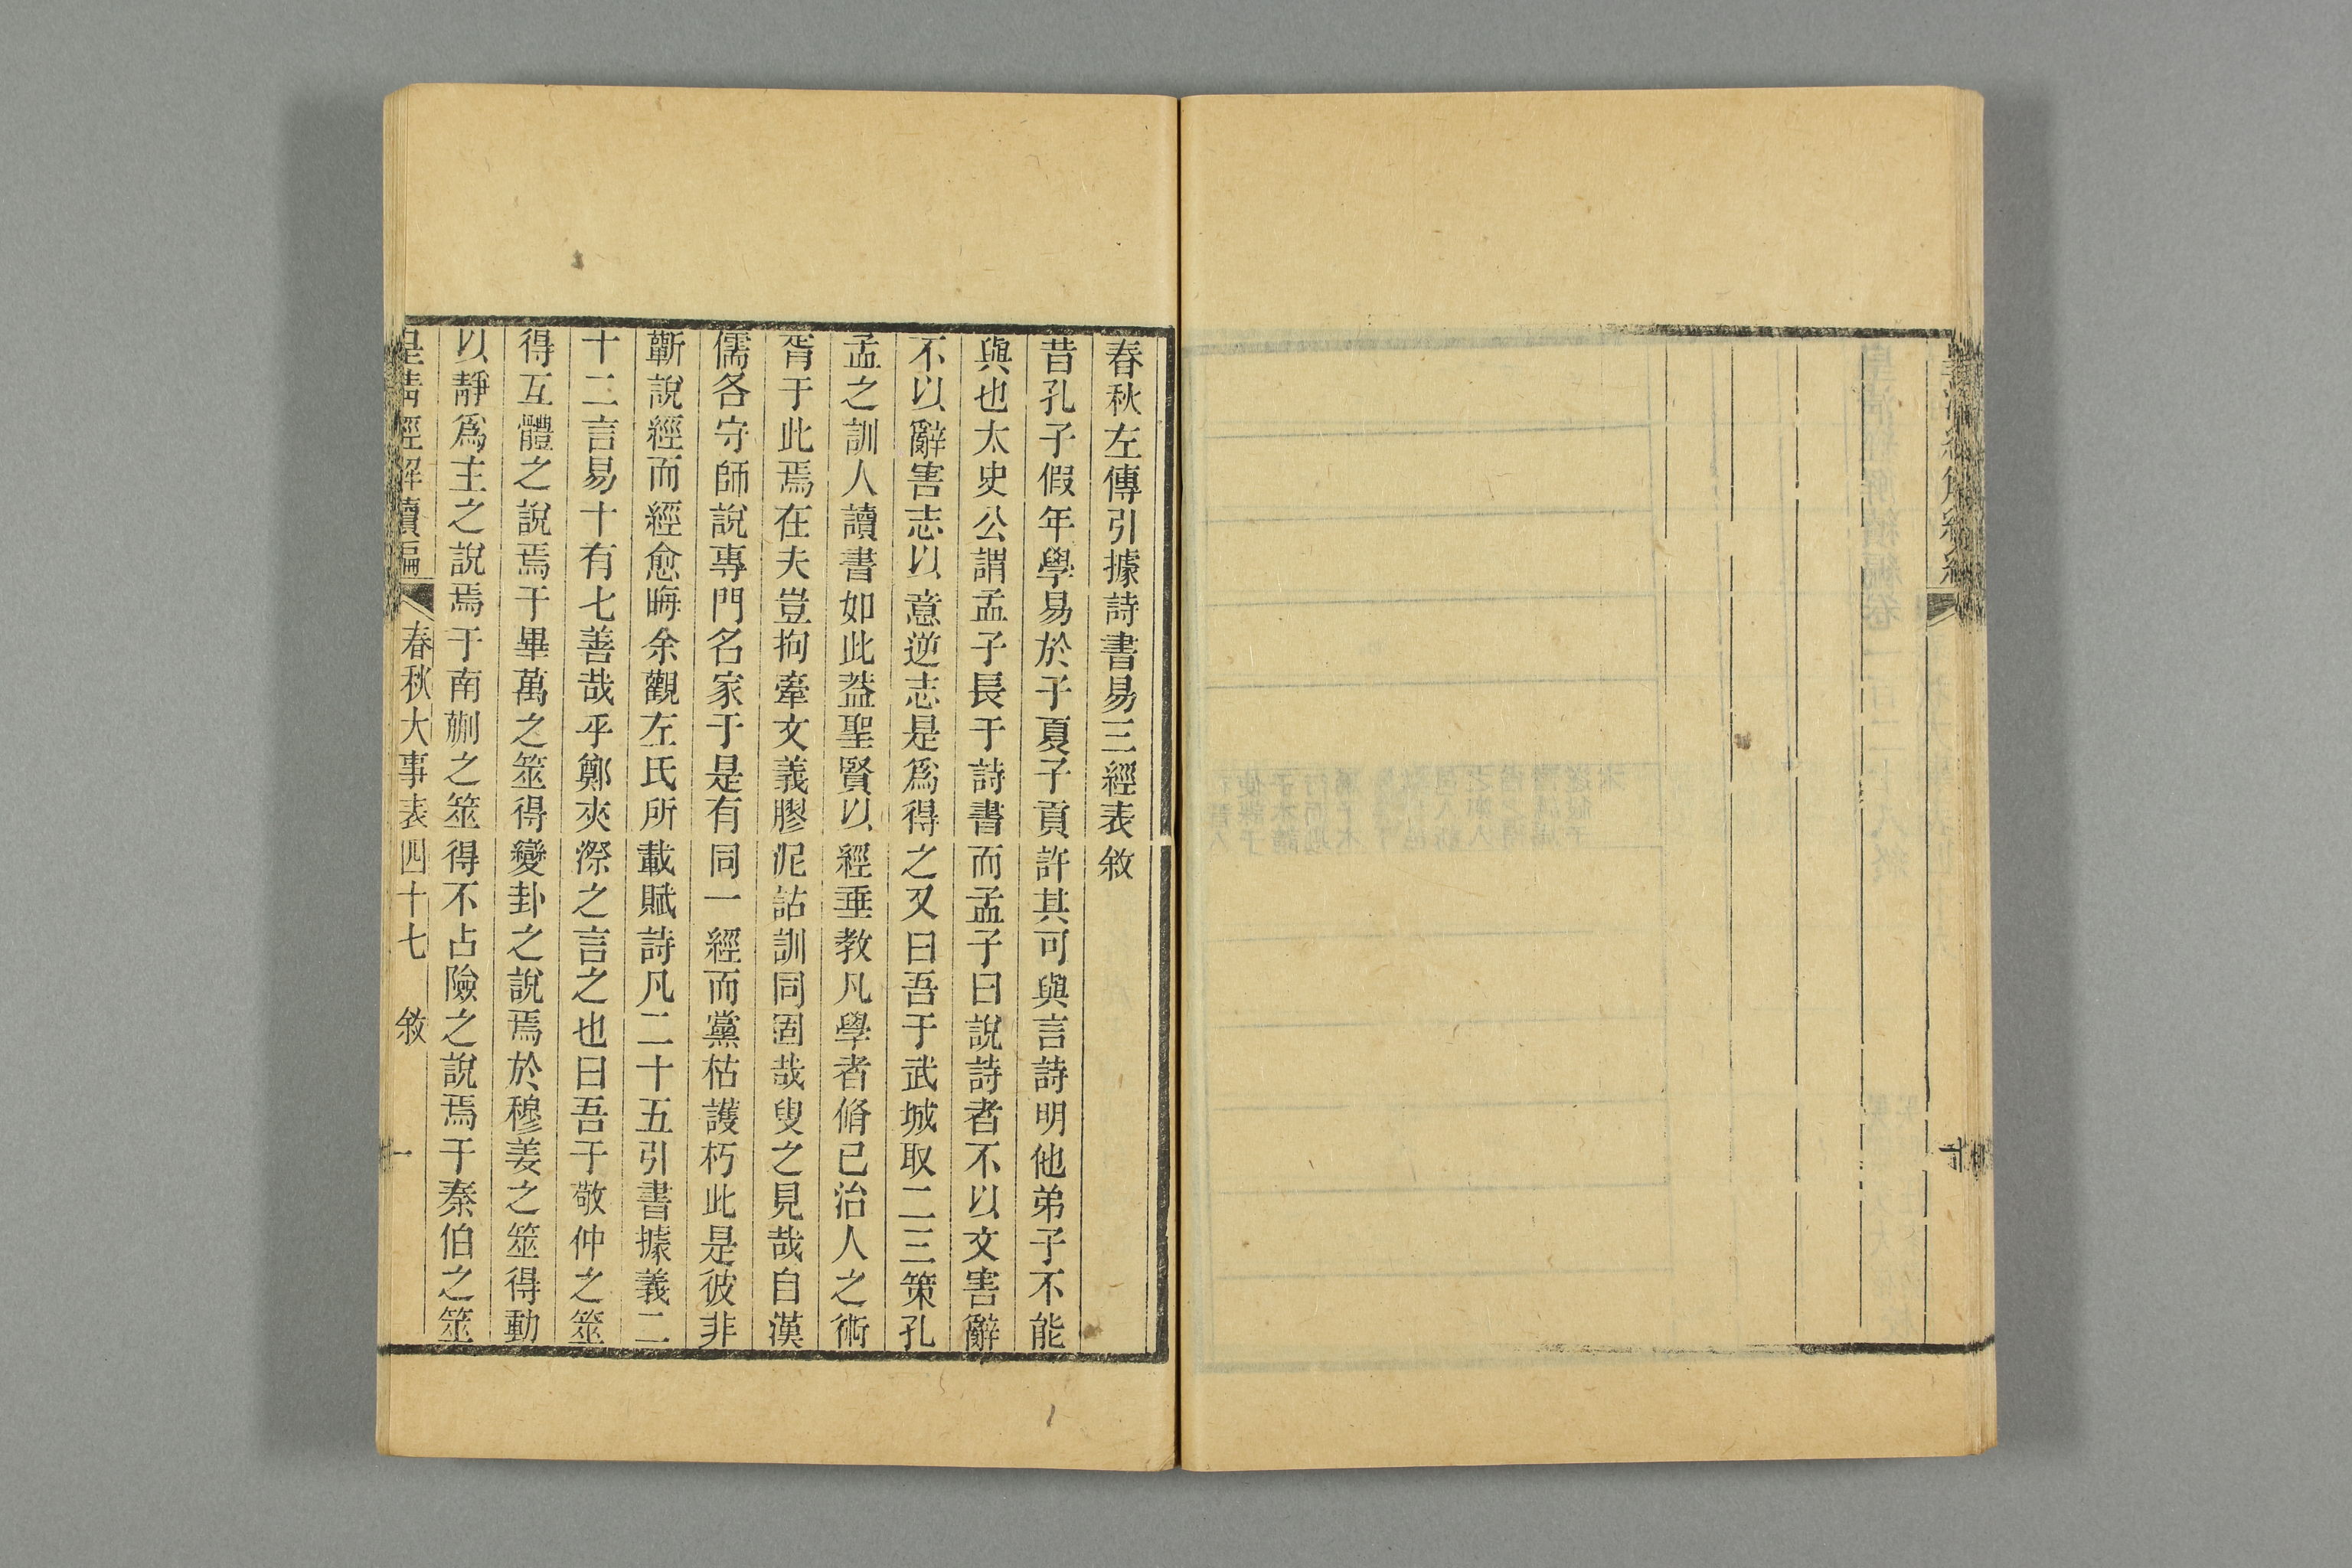 春秋左傳引據詩書易三經表敘
昔孔子假年學易於子夏子貢許其可與言詩明他弟子不能
與也太史公謂孟子長于詩書而孟子曰說詩者不以文害辭
不以辭害志以意逆志是爲得之又曰吾于武城取二三策孔
孟之訓人讀書如此葢聖賢以經垂教凡學者脩已治人之術
胥于此焉在夫豈拘牽文義膠泥詁訓同固哉叟之見哉自漢
儒各守師說專門名家于是有同一經而黨枯護朽此是彼非
蘄說經而經愈晦余觀左氏所載賦詩凡二十五引書據義二
十二言易十有七善哉乎鄭夾漈之言之也曰吾于敬仲之筮
得互體之說焉于畢萬之筮得變卦之說焉於穆姜之筮得動
以靜爲主之說焉于南蒯之筮得不占險之說焉于秦伯之筮
皇清經解續編 春秋大事表四十七 敘 一